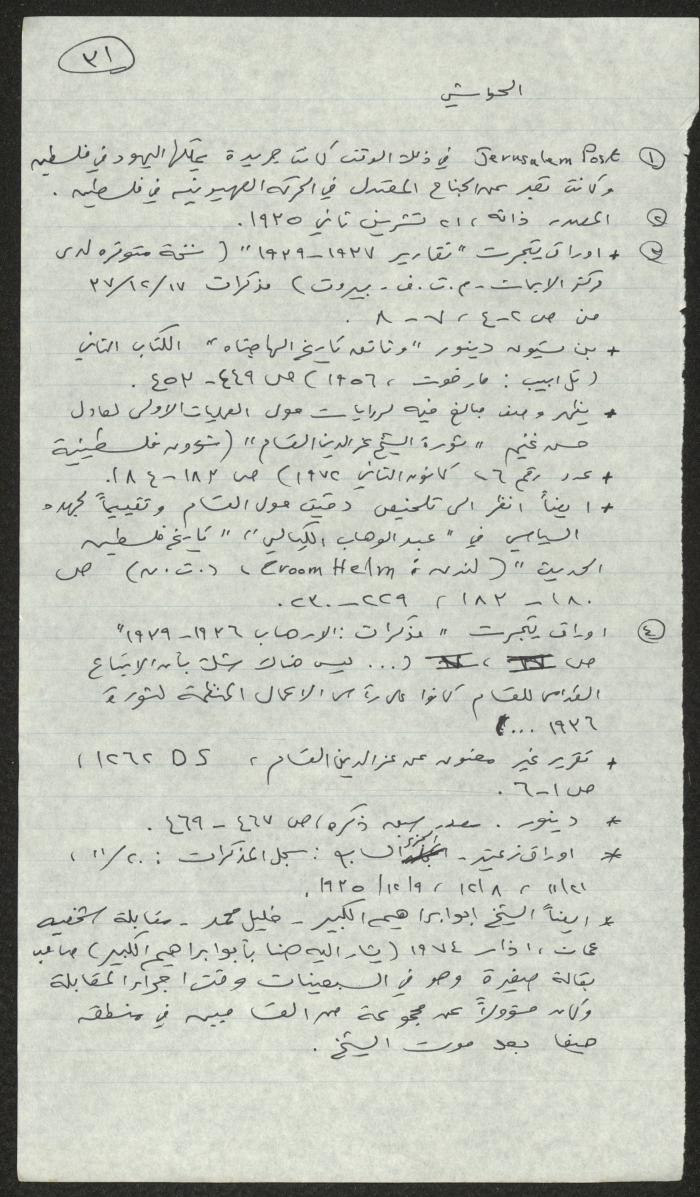 ٣١
الحواشي
١ Jerusalem Post في ذلك الوقت كانت جريدة يمتلكها اليهود في فلسطين
وكانت تعبر عن الجناح المعتدل في الحركة الصهيونية في فلسطين .
٢ المصدر ذاته ، ٢١ تشرين ثاني ١٩٣٥.
٣ + اوراق يتجرت "تقارير ١٩٣٧-١٩٣٩" ( نسخة متوفره لدى
مركز الابحاث - م.ت.ف - بيروت ) مذكرات ٣٧/١٢/١٧
من ص ٢-٤ ، ٧-٨ .
+ بن تسيون دينور "وثائق تاريخ الهاجناه" الكتاب الثاني
( تل ابيب : معارخوت ، ١٩٥٦ ) ص ٤٤٩-٤٥٣ .
+ يظهر وصف مبالغ فيه لروايات حول العمليات الاولى لعادل
حسن غنيم "ثورة الشيخ عز الدين القسام" (شؤون فلسطينية
+ عدد رقم ٦ ، كانون الثاني ١٩٧٢) ص ١٨٢-١٨٤.
+ ايضاً انظر الى تلخيص دقيق حول القسام وتقييماً لجهده
السياسي في "عبد الوهاب الكيالي" "تاريخ فلسطين
الحديث" ( لندن : Croom Helm ، د.ت.ن) ص
١٨٠-١٨٢ ، ٢٢٩-٢٣٠.
٤ اوراق يتجرت "مذكرات : الارهاب ١٩٣٦-١٩٣٩"
ص (... ليس هناك شك بأن الاتباع
القدامى للقسام كانوا على رأس الاعمال المنظمة لثورة
١٩٣٦ ...)
+ تقرير غير معنون عن عز الدين القسام ، DS ١٢٦٢ ،
ص ١-٦ .
* دينور . مصدر سبق ذكره ، ص ٤٦٧-٤٦٩ .
* اوراق زعيتر - السابق : سجل المذكرات : ١١/٢٠ ،
١١/٢١ ، ١٢/٨ ، ١٩٣٥/١٢/٩ .
* ايضاً الشيخ ابو ابراهيم الكبير - خليل محمد - مقابلة شخصيه
عمان ، اذار ١٩٧٤ (يشار اليه هنا بأبو ابراهيم الكبير) صاحب
بقالة صغيرة وهو في السبعينات وقت اجراء المقابلة
وكان مسؤولاً عن مجموعة من القساميين في منطقة
حيفا بعد موت الشيخ .